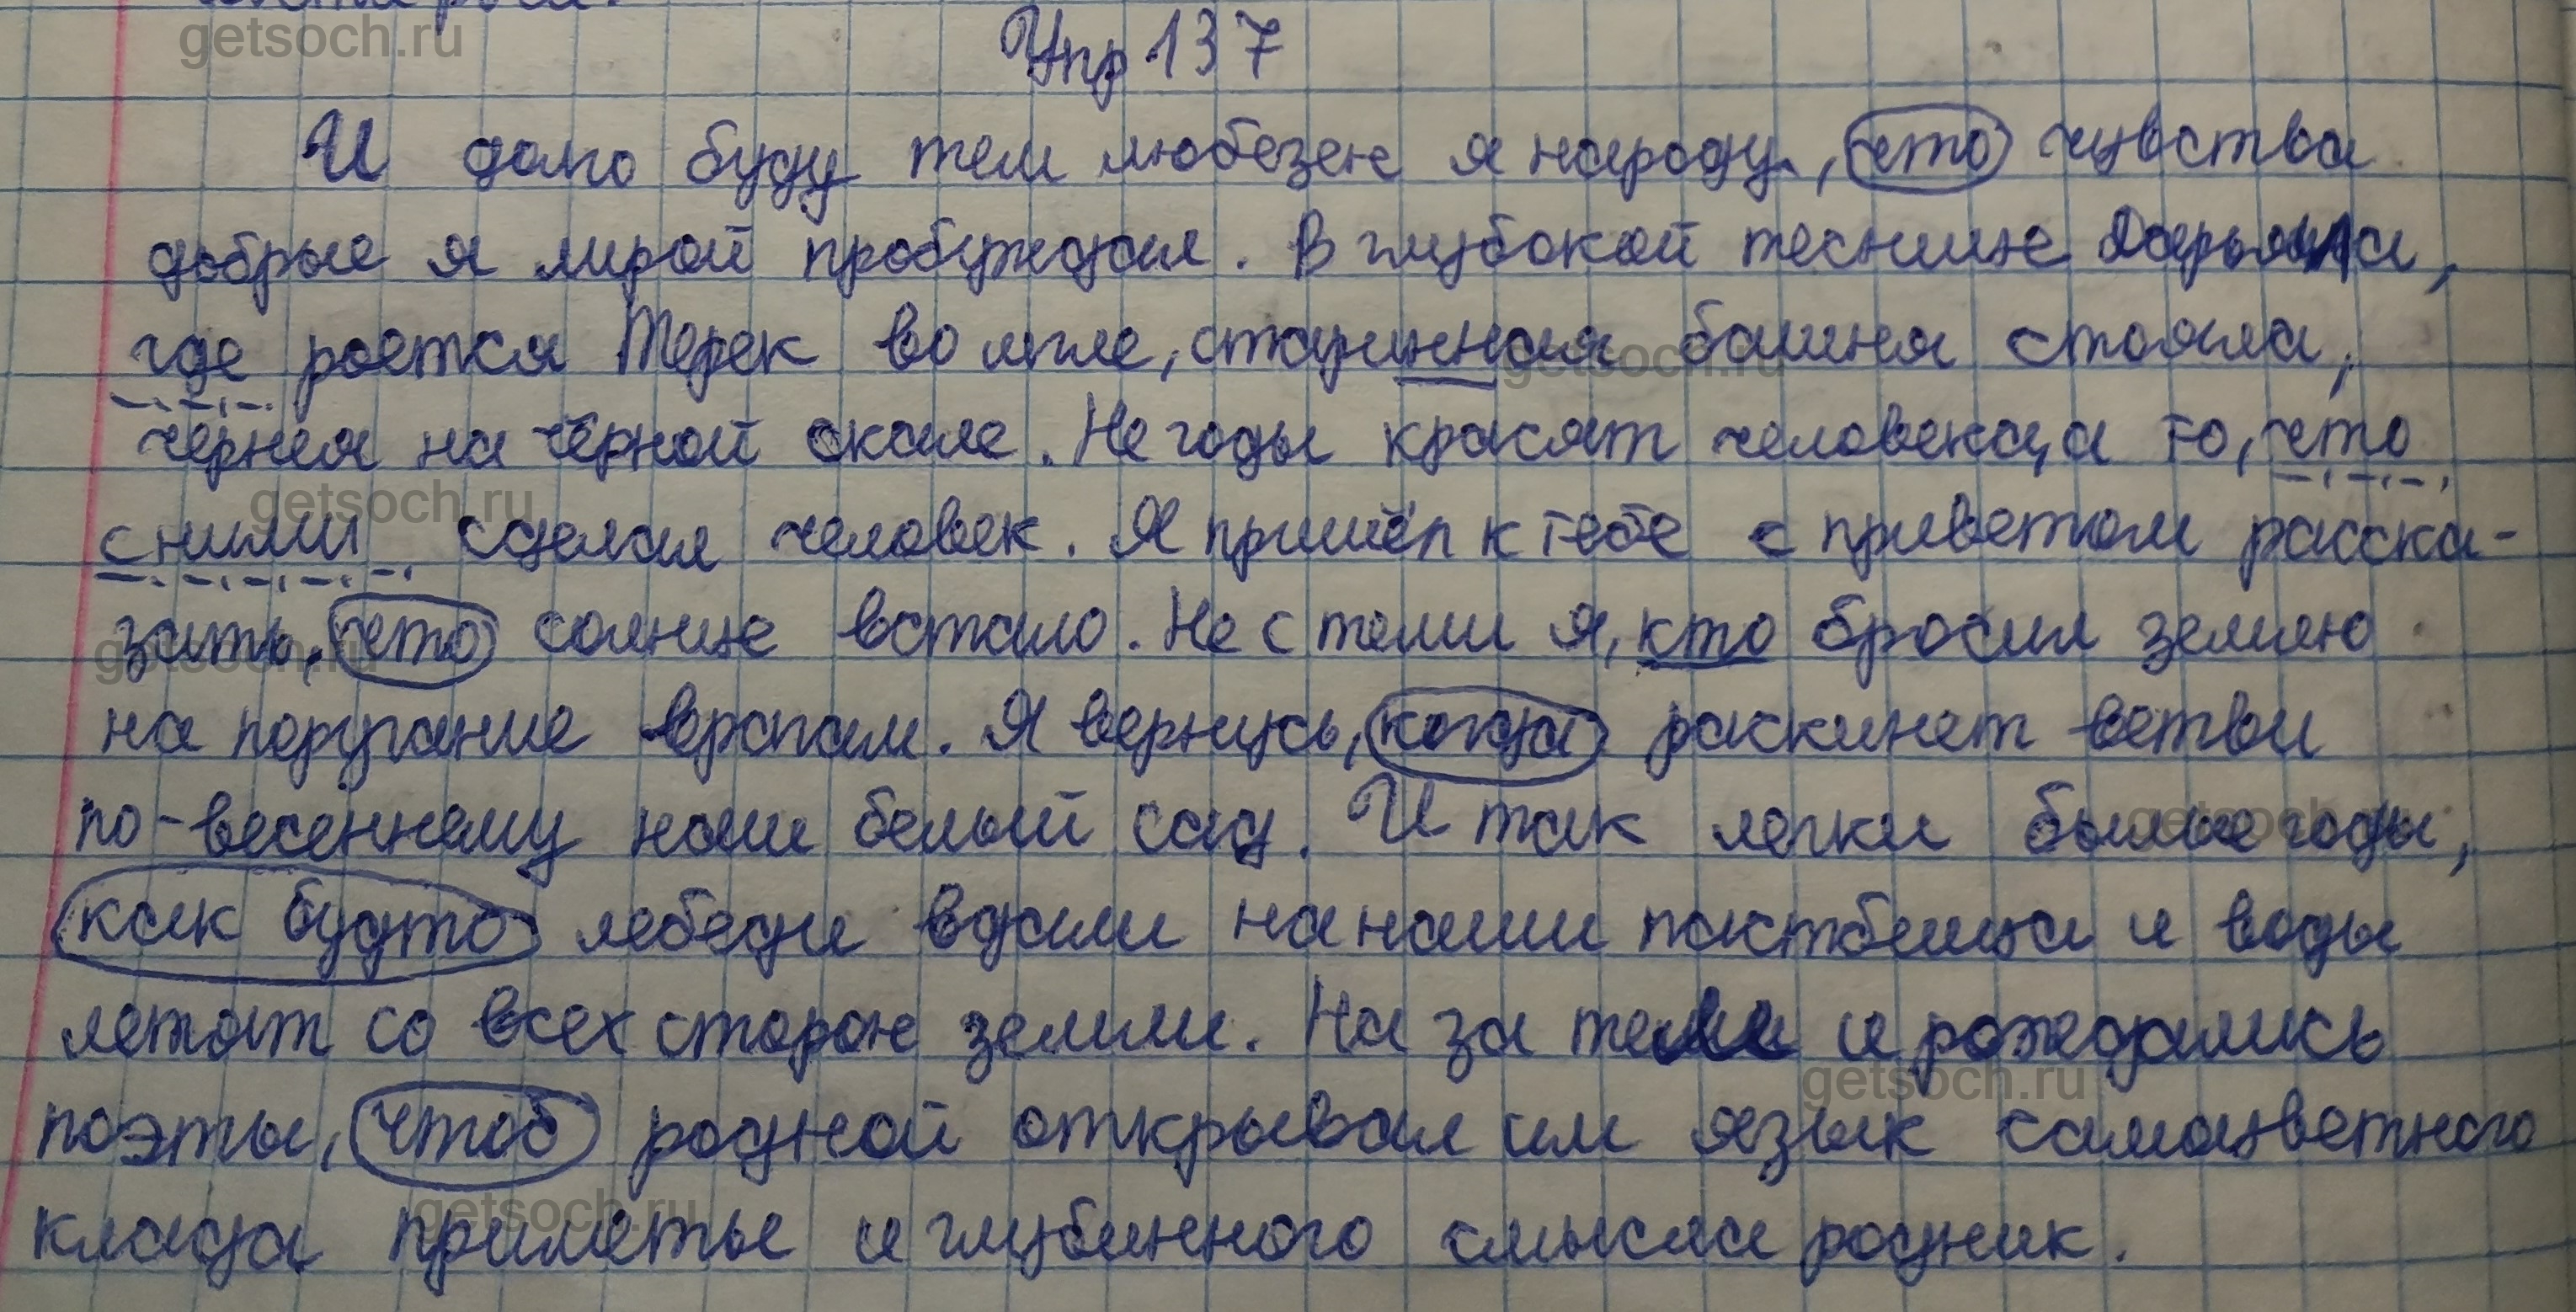 Упр 137
И долго буду тем любезен я народу, что чувства
добрые я лирой пробуждал. В глубокой теснине Дарьяла,
где роется Терек во мгле, старинная башня стояла,
чернея на чёрной скале. Не годы красят человека, а то, что
с ними сделал человек. Я пришёл к тебе с приветом расска-
зать, что солнце встало. Не с теми я, кто бросил землю
на поругание врагам. Я вернусь, когда раскинет ветви
по-весеннему наш белый сад. И так легки былые годы,
как будто лебеди вдали на наши пастбища и воды
летят со всех сторон земли. На за тем и рождались
поэты, чтоб родной открывал им язык самоцветного
клада приметы и глубинного смысла родник.
getsoch.ru
getsoch.ru
getsoch.ru
getsoch.ru
getsoch.ru
getsoch.ru
getsoch.ru